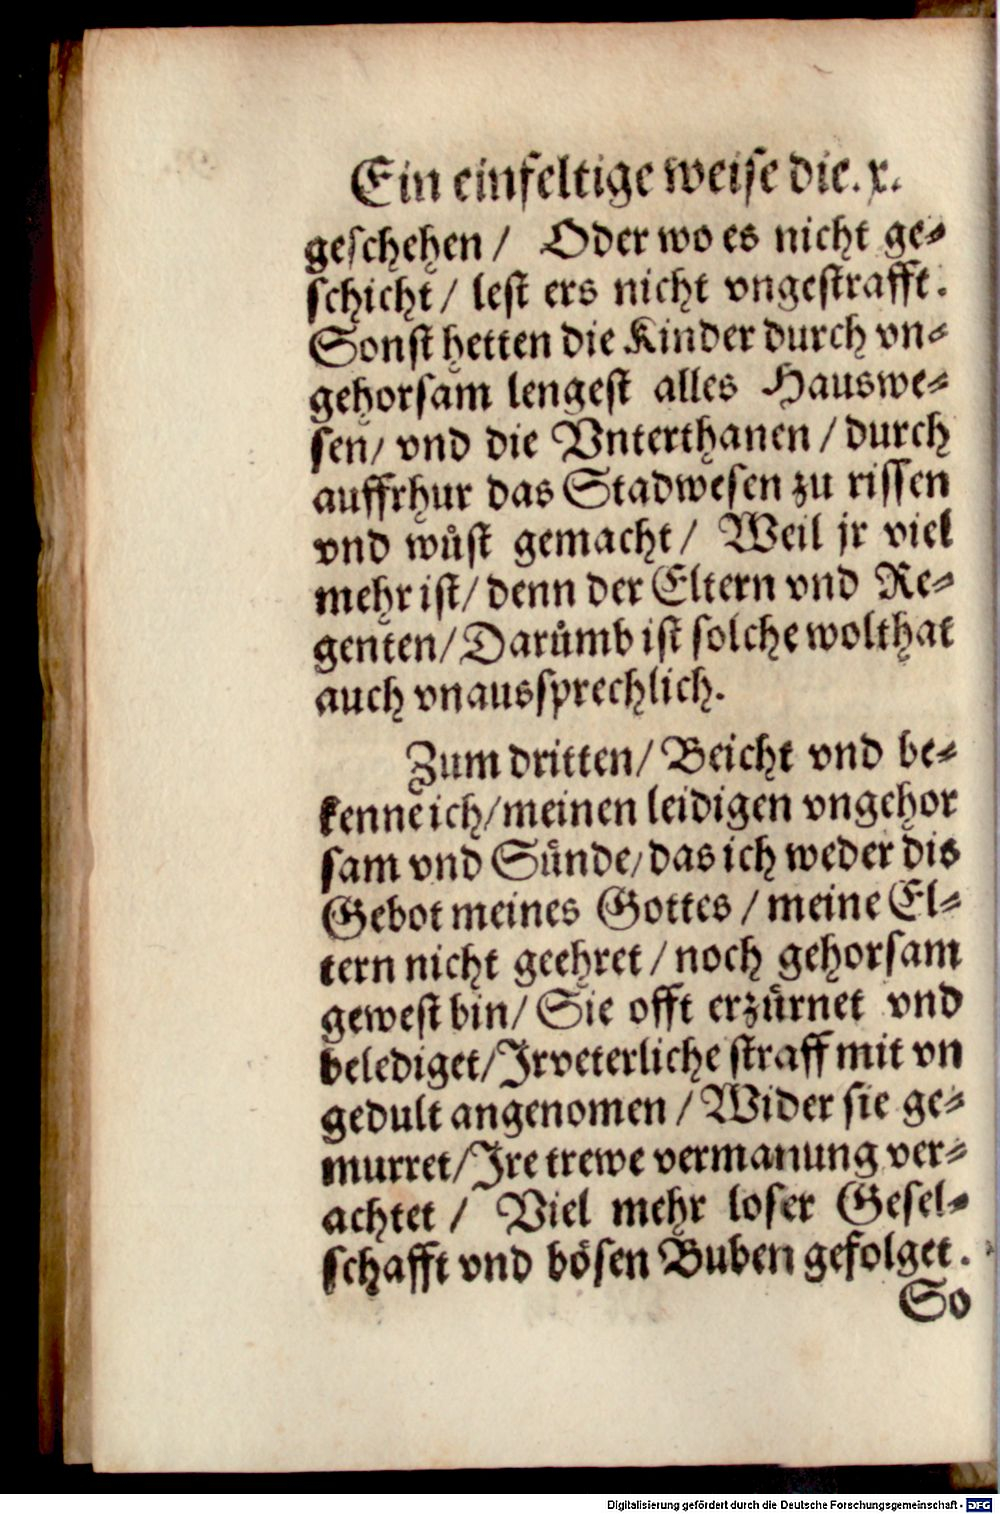 Ein einfeltige weise die. x.
geschehen / Oder wo es nicht ge⸗
schicht / lest ers nicht vngestrafft.
Sonst hetten die Kinder durch vn⸗
gehorsam lengest alles Hauswe⸗
sen / vnd die Vnterthanen / durch
auffrhur das Stadwesen zu rissen
vnd wuͤst gemacht / Weil jr viel
mehr ist / denn der Eltern vnd Re⸗
genten / Daruͤmb ist solche wolthat
auch vnaussprechlich.
Zum dritten / Beicht vnd be⸗
kenne ich / meinen leidigen vngehor
sam vnd Suͤnde / das ich weder dis
Gebot meines Gottes / meine El⸗
tern nicht geehret / noch gehorsam
gewest bin / Sie offt erzuͤrnet vnd
belediget / Jr veterliche straff mit vn
gedult angenomen / Wider sie ge⸗
murret / Jre trewe vermanung ver⸗
achtet / Viel mehr loser Gesel⸗
schafft vnd boͤsen Buben gefolget.
So
Digitalisierung gefördert durch die Deutsche Forschungsgemeinschaft - DFG